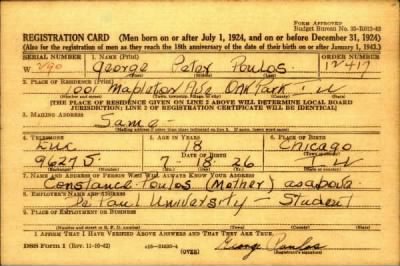 FORM APPROVED
Budget Bureau No. 33-R012-42
REGISTRATION CARD (Men born on or after July 1, 1924, and on or before December 31, 1924)
(Also for the registration of men as they reach the 18th anniversary of the date of their birth on or after January 1, 1943.)
SERIAL NUMBER 1. NAME (Print) ORDER NUMBER
W 290 George Peter Poulos 12417
(First) (Middle) (Last)
2. PLACE OF RESIDENCE (Print)
1001 Mapleton Ave Oak Park Ill
[THE PLACE OF RESIDENCE GIVEN ON LINE 2 ABOVE WILL DETERMINE LOCAL BOARD
JURISDICTION; LINE 2 OF REGISTRATION CERTIFICATE WILL BE IDENTICAL]
3. MAILING ADDRESS
Same -
[Mailing address if other than place indicated on line 2. If same, insert word same]
4. TELEPHONE 5. AGE IN YEARS 6. PLACE OF BIRTH
Euc 18 Chicago
DATE OF BIRTH
9627 J 7 - 18 - 26 Ill
7. NAME AND ADDRESS OF PERSON WHO WILL ALWAYS KNOW YOUR ADDRESS
Constance Poulos (Mother) as above
8. EMPLOYER'S NAME AND ADDRESS
De Paul University - Student
9. PLACE OF EMPLOYMENT OR BUSINESS
I AFFIRM THAT I HAVE VERIFIED ABOVE ANSWERS AND THAT THEY ARE TRUE.
DSS Form 1 (Rev. 11-16-42) (OVER) George Poulos